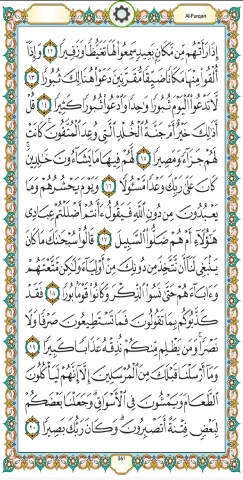 Al-Furqan
إِذَا رَأَتْهُم مِّن مَّكَانٍ بَعِيدٍ سَمِعُوا لَهَا تَغَيُّظًا وَزَفِيرًا ١٢ وَإِذَا
أُلْقُوا مِنْهَا مَكَانًا ضَيِّقًا مُّقَرَّنِينَ دَعَوْا هُنَالِكَ ثُبُورًا ١٣
لَّا تَدْعُوا الْيَوْمَ ثُبُورًا وَاحِدًا وَادْعُوا ثُبُورًا كَثِيرًا ١٤ قُلْ
أَذَٰلِكَ خَيْرٌ أَمْ جَنَّةُ الْخُلْدِ الَّتِي وُعِدَ الْمُتَّقُونَ ۚ كَانَتْ
لَهُمْ جَزَاءً وَمَصِيرًا ١٥ لَّهُمْ فِيهَا مَا يَشَاءُونَ خَالِدِينَ ۚ
كَانَ عَلَىٰ رَبِّكَ وَعْدًا مَّسْئُولًا ١٦ وَيَوْمَ يَحْشُرُهُمْ وَمَا
يَعْبُدُونَ مِن دُونِ اللَّهِ فَيَقُولُ ءَأَنتُمْ أَضْلَلْتُمْ عِبَادِي
هَٰؤُلَاءِ أَمْ هُمْ ضَلُّوا السَّبِيلَ ١٧ قَالُوا سُبْحَانَكَ مَا كَانَ
يَنبَغِي لَنَا أَن نَّتَّخِذَ مِن دُونِكَ مِنْ أَوْلِيَاءَ وَلَٰكِن مَّتَّعْتَهُمْ
وَءَابَاءَهُمْ حَتَّىٰ نَسُوا الذِّكْرَ وَكَانُوا قَوْمًا بُورًا ١٨ فَقَدْ
كَذَّبُوكُم بِمَا تَقُولُونَ فَمَا تَسْتَطِيعُونَ صَرْفًا وَلَا
نَصْرًا ۚ وَمَن يَظْلِم مِّنكُمْ نُذِقْهُ عَذَابًا كَبِيرًا ١٩
وَمَا أَرْسَلْنَا قَبْلَكَ مِنَ الْمُرْسَلِينَ إِلَّا إِنَّهُمْ لَيَأْكُلُونَ
الطَّعَامَ وَيَمْشُونَ فِي الْأَسْوَاقِ ۗ وَجَعَلْنَا بَعْضَكُمْ
لِبَعْضٍ فِتْنَةً أَتَصْبِرُونَ ۗ وَكَانَ رَبُّكَ بَصِيرًا ٢٠
361